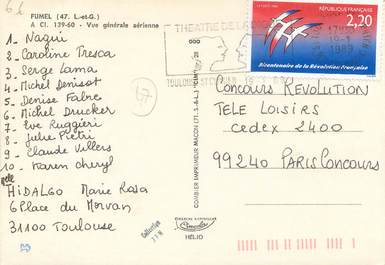 FUMEL (47. L.-et-G.)
A CI. 139-60 - Vue générale aérienne
1_ Nagui
2_ Caroline Tresca
3_ Serge Lama
4_ Michel Denisot
5_ Denise Fabre
6_ Michel Drucker
7_ Eve Ruggieri
8_ Julie Pietri
9_ Claude Villers
10_ Karen Cheryl
HIDALGO Marie Rosa
6 Place du Morvan
31100 Toulouse
67
COMBIER IMPRIMEUR MACON (71. S.-&-L.)
Combier
HÉLIO
Collection
THEATRE DE LA
TOULOUSE ST CYPRIEN
1989
RÉPUBLIQUE FRANÇAISE
2,20
Bicentenaire de la Révolution Française
Concours REVOLUTION
TELE LOISIRS
CEDEX 2400
99240 PARIS CONCOURS